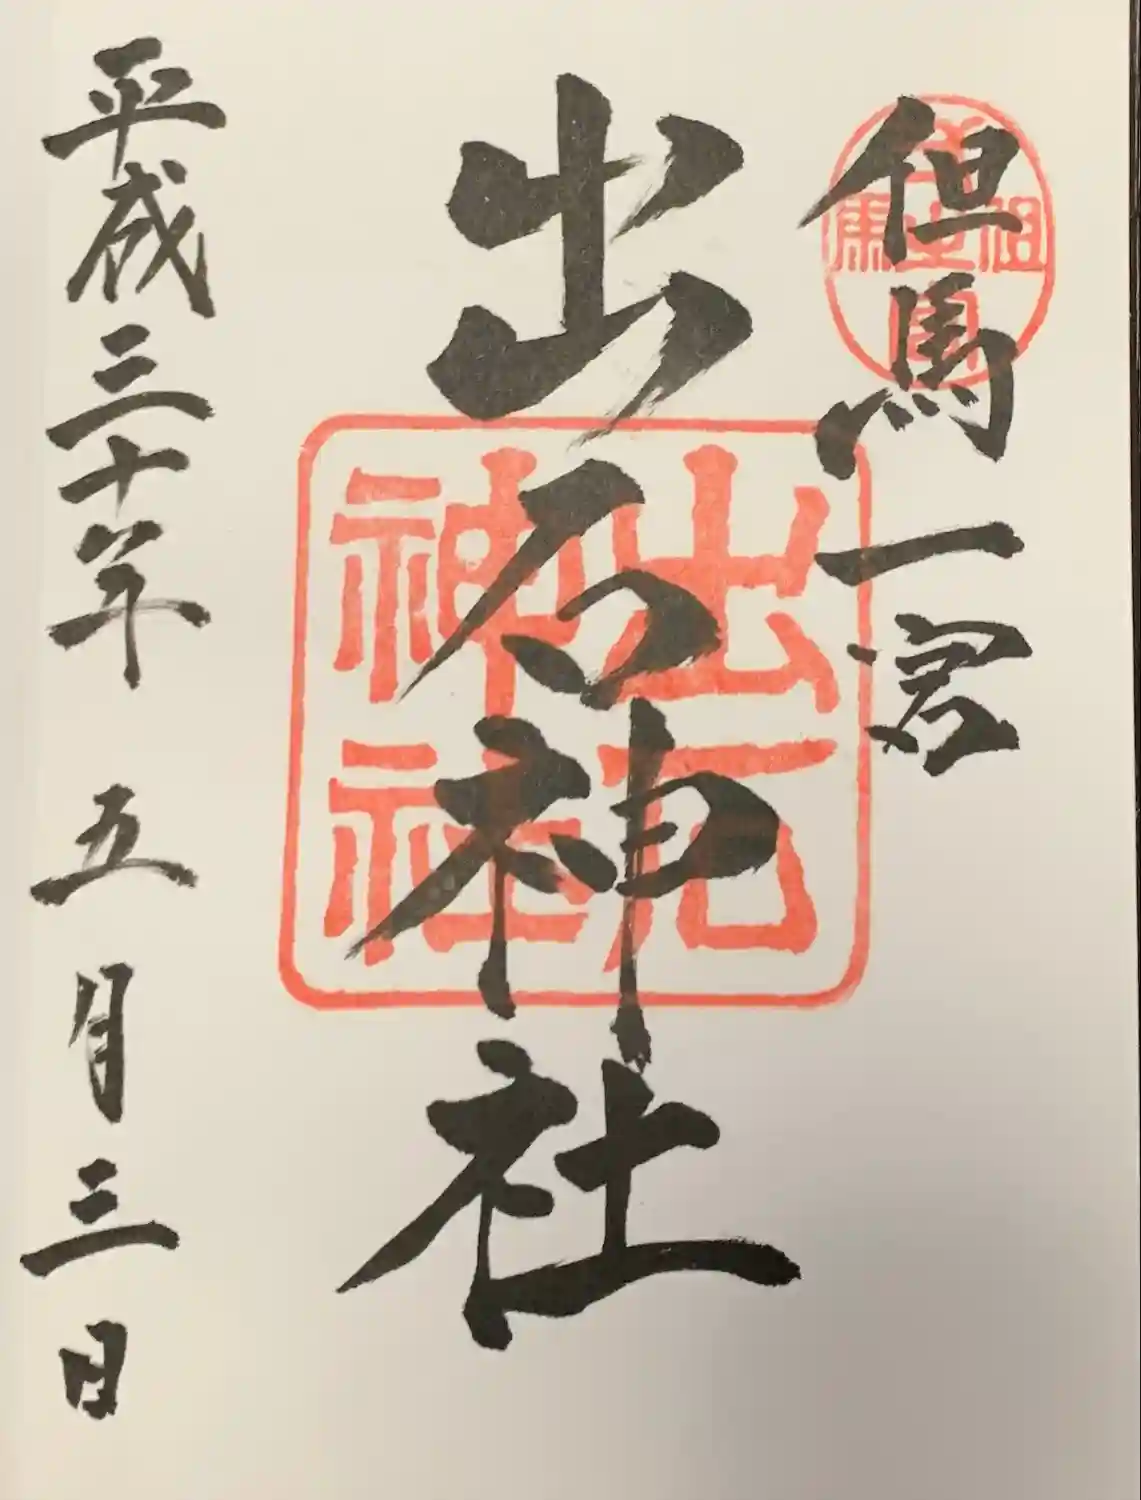 但馬一宮
出石神社
平成三十年 五月三日
出石
神社